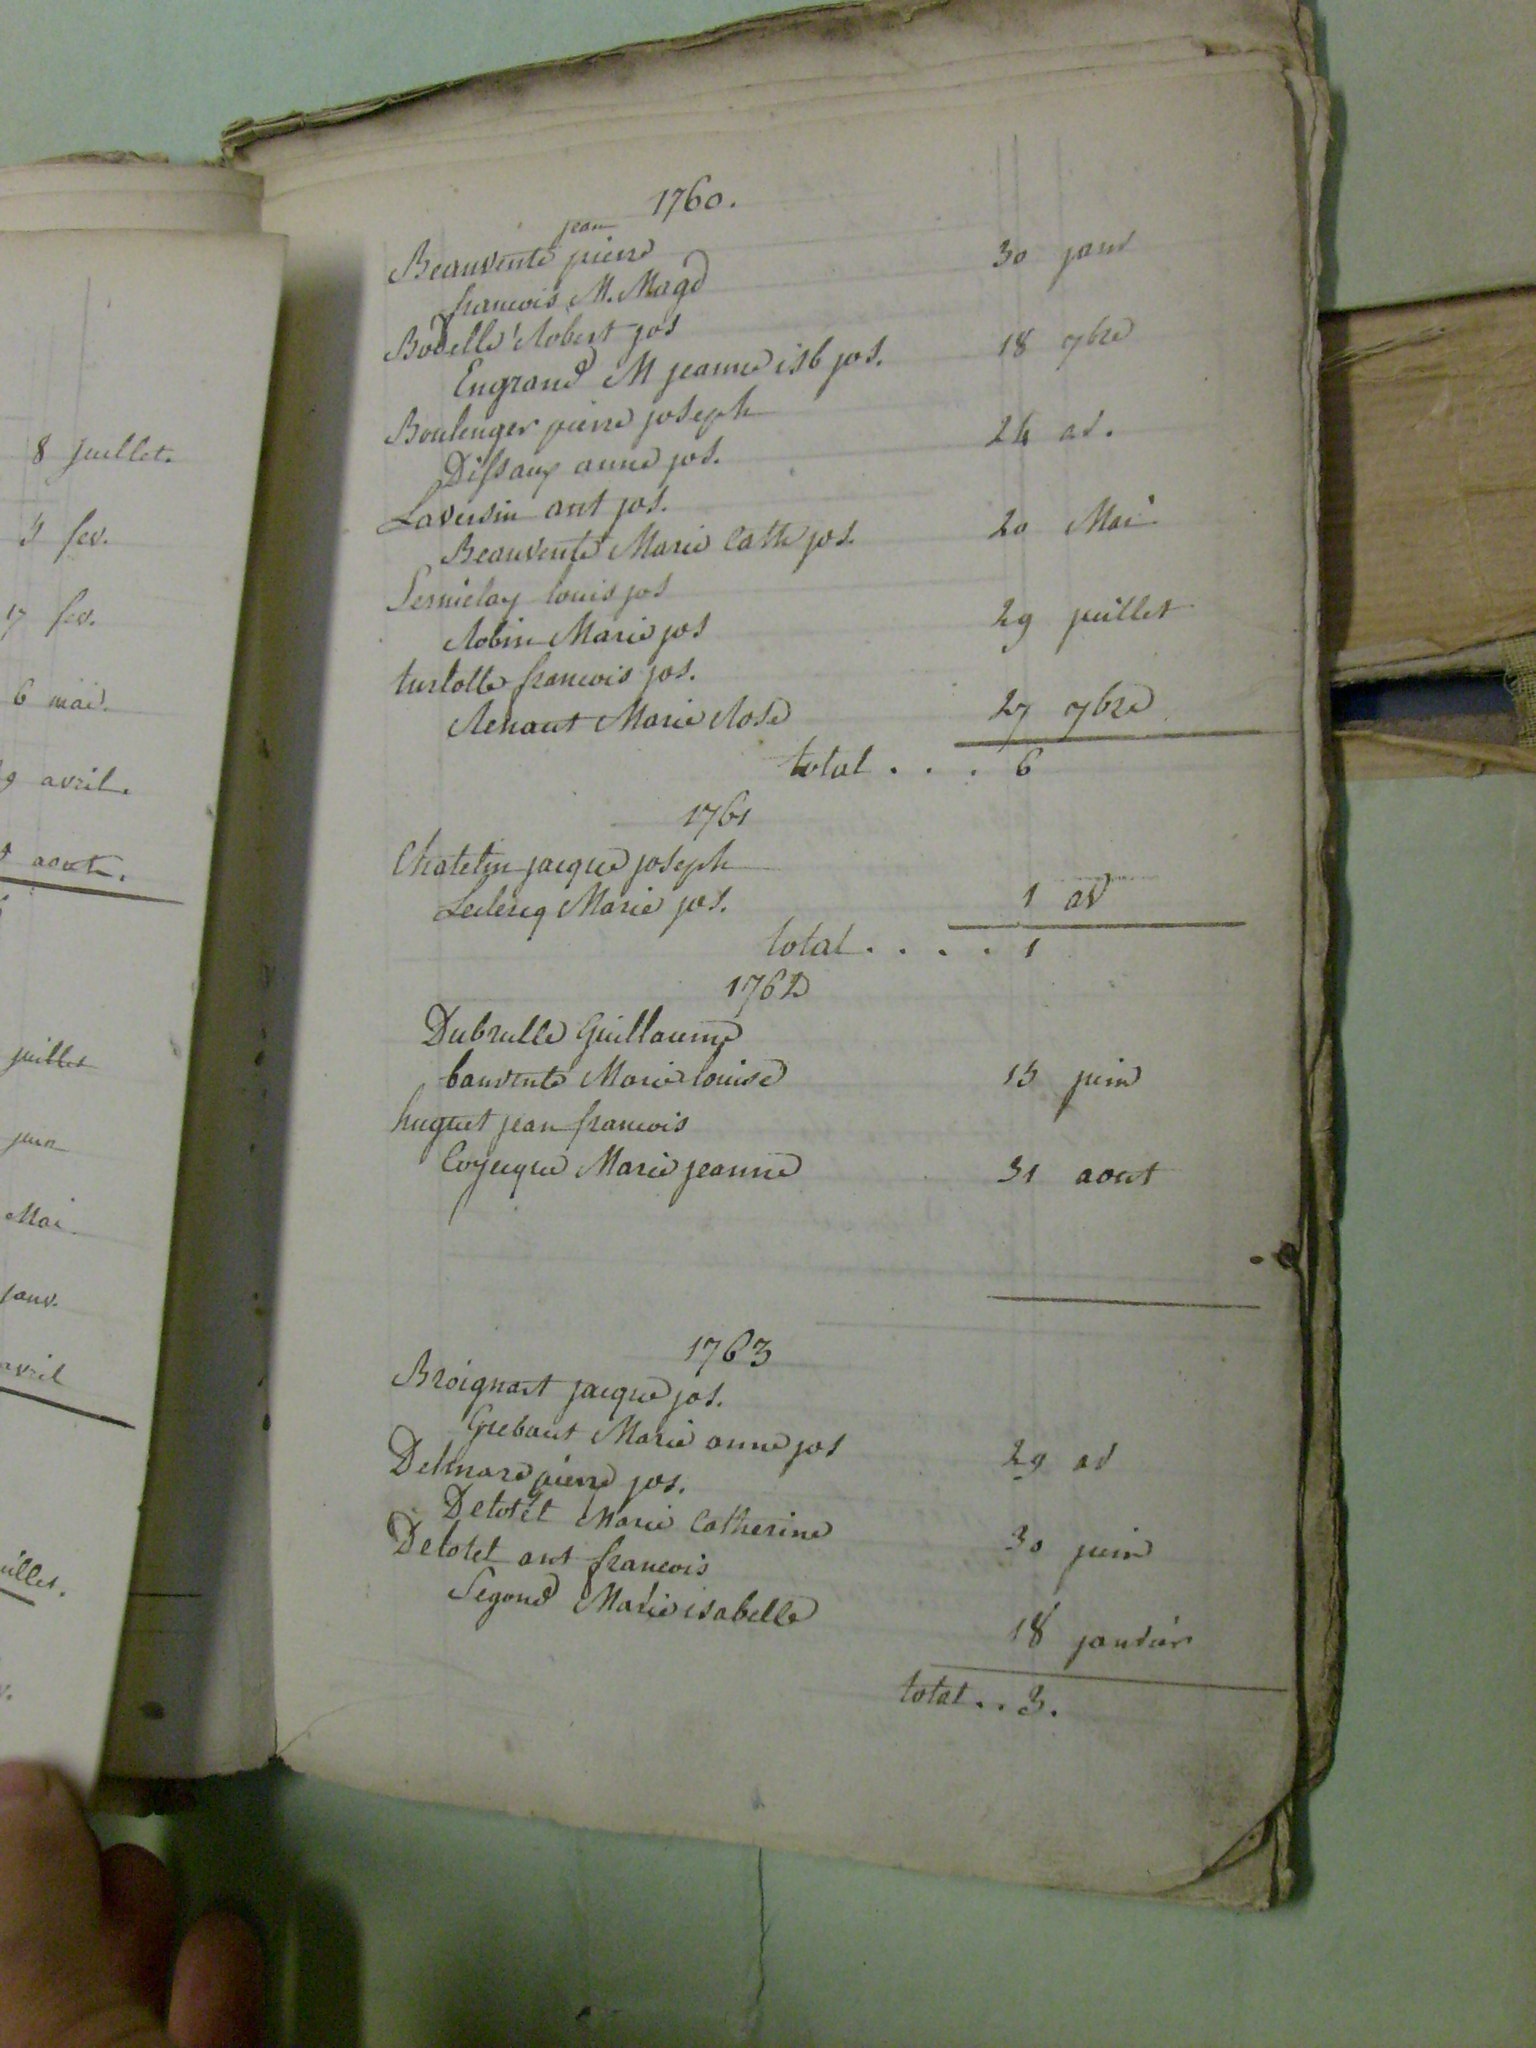 8 juillet.
3 fev.
17 fev.
6 mai.
9 avril.
aout.
juillet
juin
Mai
janv.
avril
1760.
jean
Beauvente pierre
francois M. Magd 30 janv
Bodelle Robert jos
Engrand M jeanne isb jos. 18 7bre
Boulenger pierre joseph
Dissaux anne jos. 24 av.
Laversin ant jos.
Beauvente Marie Cath jos. 20 Mai
Lernielay louis jos
Robin Marie jos 29 juillet
turlotte francois jos.
Renaut Marie Rose 27 7bre
total . . . 6
1761
Chatelin jacque joseph
Leclercq Marie jos. 1 av
total . . . . 1
1762
Dubrulle Guillaume
bauvente Marie louise 15 juin
huguet jean francois
Coyecque Marie jeanne 31 aout
1763
Broignart jacque jos.
Grebaut Marie anne jos 29 av
Delmare pierre jos.
Delotel Marie Catherine 30 juin
Delotel ant francois
Segond Marie isabelle 18 janvier
total . . 3.